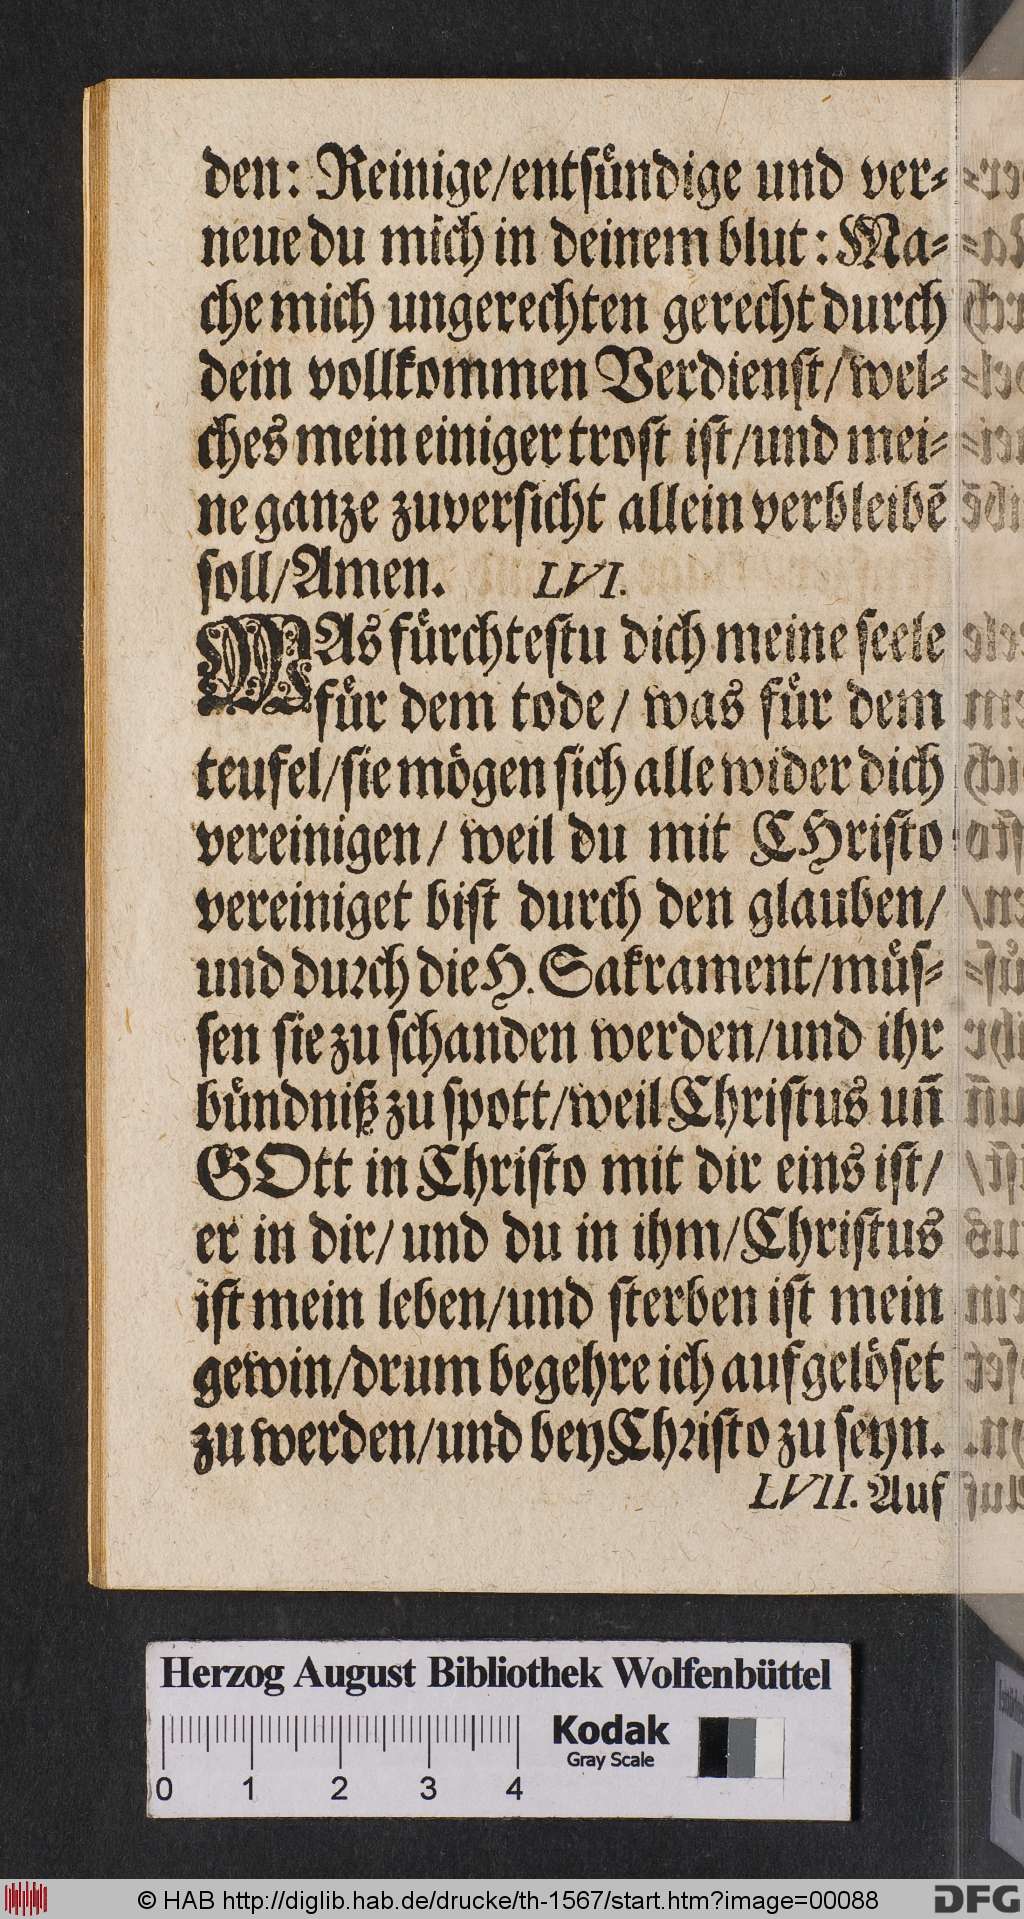 den: Reinige/entsuͤndige und ver⸗
neue du mich in deinem blut: Ma⸗
che mich ungerechten gerecht durch
dein vollkommen Verdienst/ wel⸗
ches mein einiger trost ist/und mei⸗
ne ganze zuversicht allein verbleibē
soll/Amen. LVI.
WAs fuͤrchtestu dich meine seele
fuͤr dem tode/ was fuͤr dem
teufel/sie moͤgen sich alle wider dich
vereinigen/ weil du mit CHristo
vereiniget bist durch den glauben/
und durch die H. Sakrament/muͤs⸗
sen sie zu schanden werden/und ihr
buͤndniß zu spott/weil Christus uñ
GOtt in Christo mit dir eins ist/
er in dir/ und du in ihm/Christus
ist mein leben/und sterben ist mein
gewin/drum begehre ich aufgeloͤset
zu werden/und bey Christo zu seyn.
LVII. Auf
Herzog August Bibliothek Wolfenbüttel
Kodak
Gray Scale
0 1 2 3 4
© HAB http://diglib.hab.de/drucke/th-1567/start.htm?image=00088
DFG